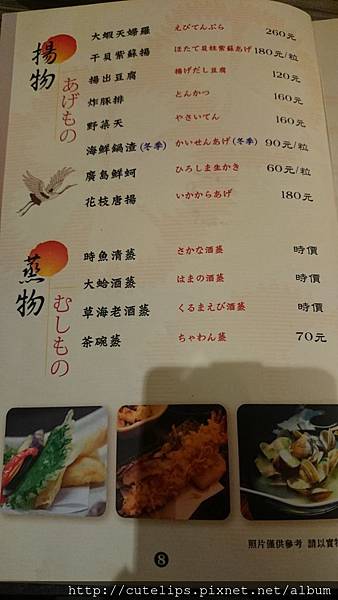 揚物
あげもの
大蝦天婦羅 えびてんぷら 260元
干貝紫蘇揚 ほたて貝柱紫蘇あげ 180元/粒
揚出豆腐 揚げだし豆腐 120元
炸豚排 とんかつ 160元
野菜天 やさいてん 160元
海鮮鍋渣(冬季) かいせんあげ(冬季) 90元/粒
廣島鮮蚵 ひろしま生かき 60元/粒
花枝唐揚 いかからあげ 180元
蒸物
むしもの
時魚清蒸 さかな酒蒸 時價
大蛤酒蒸 はまの酒蒸 時價
草海老酒蒸 くるまえび酒蒸 時價
茶碗蒸 ちゃわん蒸 70元
照片僅供參考 請以實物
8
http://cutelips.pixnet.net/album